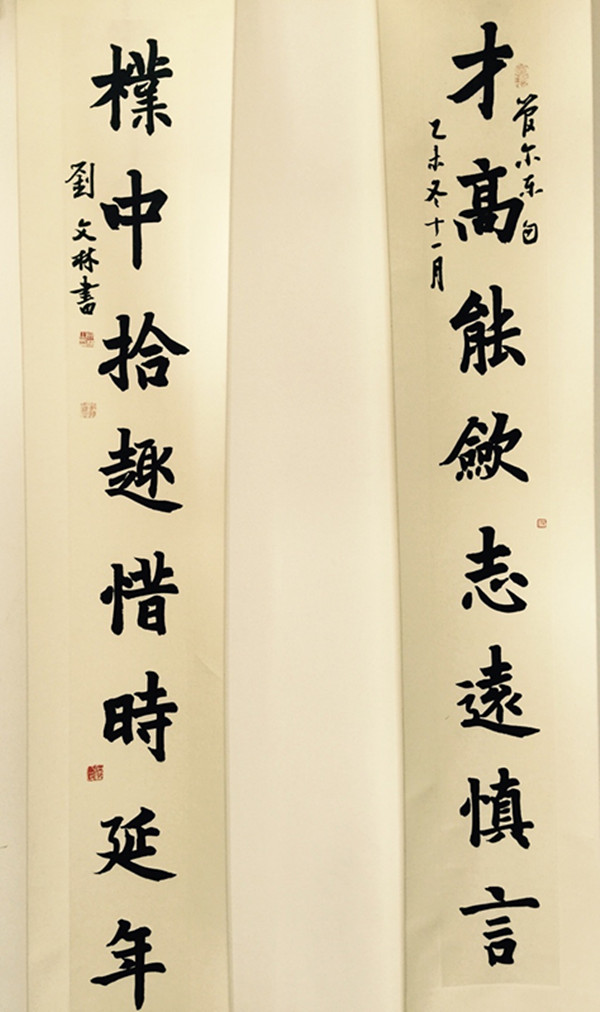 才高能歛志遠慎言
管尔东句
乙未冬十一月
樸中拾趣惜時延年
劉文林書